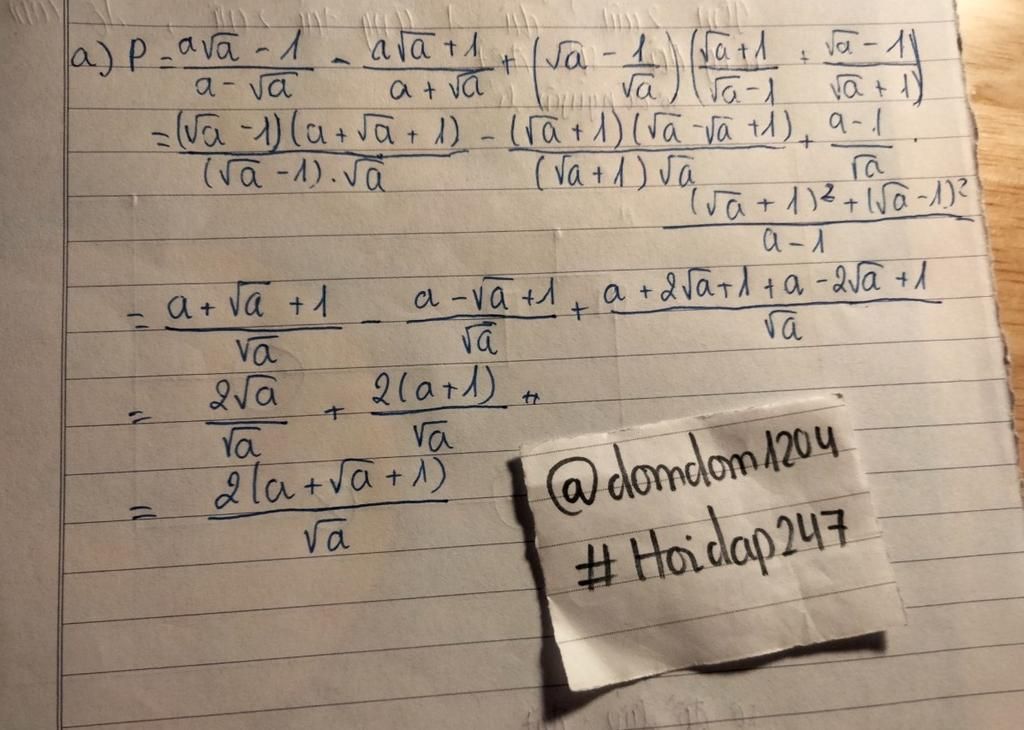 a) P = (a√a - 1)/(a - √a) - (a√a + 1)/(a + √a) + (√a - 1/√a)((√a + 1)/(√a - 1) + (√a - 1)/(√a + 1))
= (√a - 1)(a + √a + 1)/((√a - 1).√a) - (√a + 1)(√a - √a + 1)/((√a + 1)√a) + (a - 1)/√a .
((√a + 1)² + (√a - 1)²)/(a - 1)
= (a + √a + 1)/√a - (a - √a + 1)/√a + (a + 2√a + 1 + a - 2√a + 1)/√a
= 2√a/√a + 2(a + 1)/√a
= 2(a + √a + 1)/√a
@domdom1204
# Hoidap247